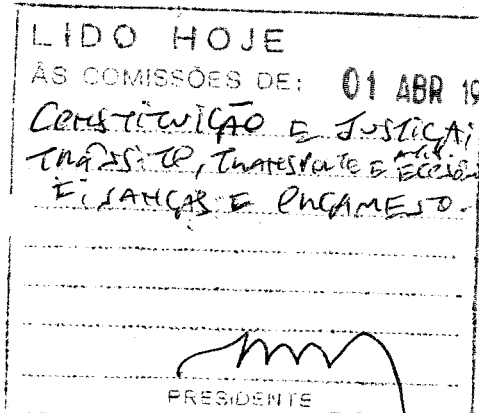 LIDO HOJE
ÀS COMISSÕES DE: 01 ABR 19
CONSTITUIÇÃO E JUSTIÇA;
TRÂNSITO, TRANSPORTE E
FINANÇAS E ORÇAMENTO.
PRESIDENTE